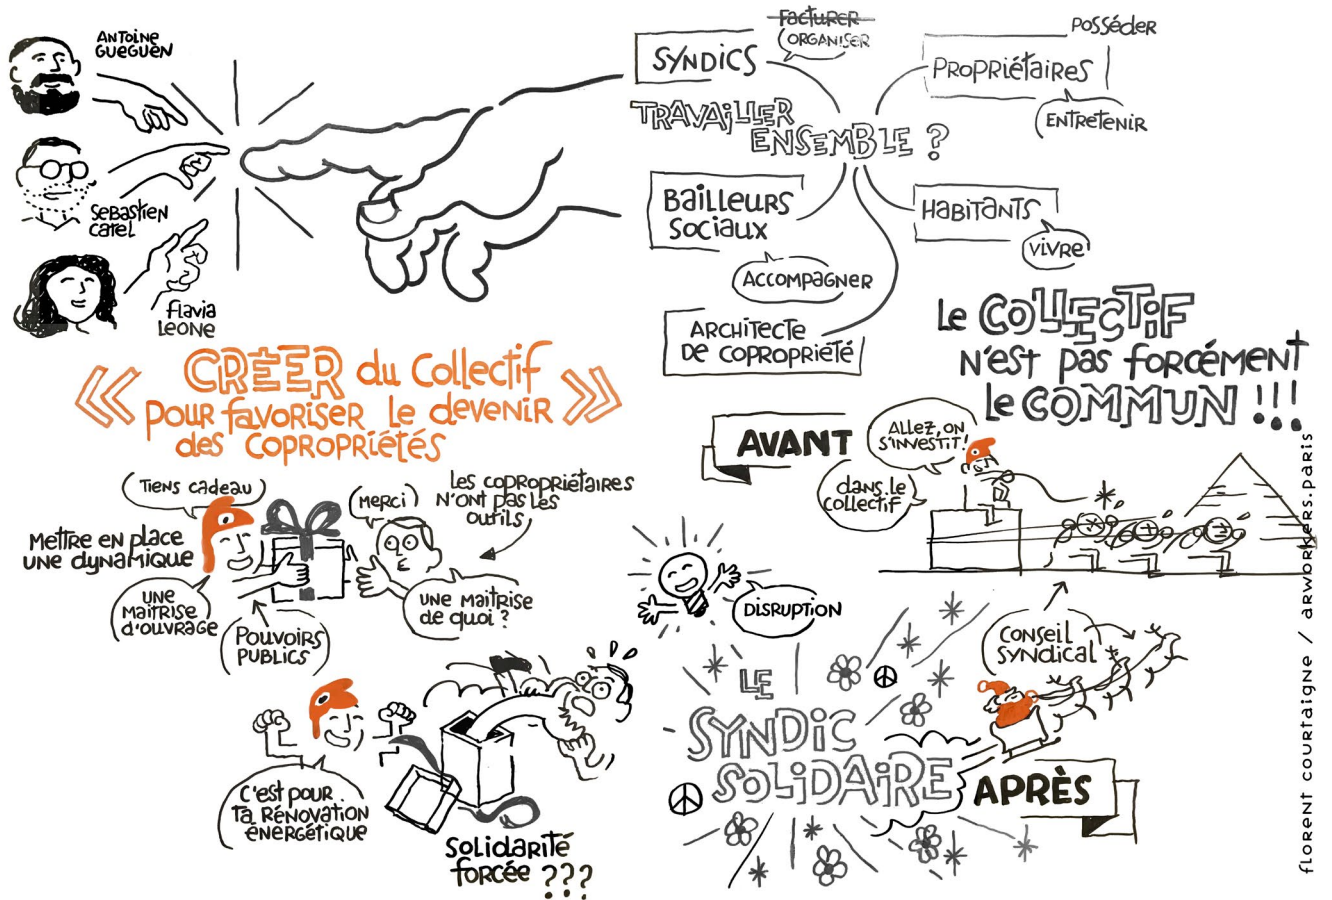 Antoine
Gueguen
Sebastien
Catel
Flavia
Leone
Syndics
Facturer
Organiser
Posséder
Propriétaires
Entretenir
Travailler
ensemble ?
Bailleurs
sociaux
Accompagner
Habitants
Vivre
Architecte
de copropriété
Le collectif
n'est pas forcément
le commun !!!
« Créer du collectif
pour favoriser le devenir
des copropriétés »
Tiens cadeau
Merci
Les copropriétaires
n'ont pas les
outils
Mettre en place
une dynamique
Une
maitrise
d'ouvrage
Pouvoirs
publics
Une maitrise
de quoi ?
C'est pour
ta rénovation
énergétique
Solidarité
forcée ???
Avant
Allez, on
s'investit !
dans le
collectif
Disruption
Conseil
syndical
Le
syndic
solidaire
Après
florent courtaigne / arworkers.paris